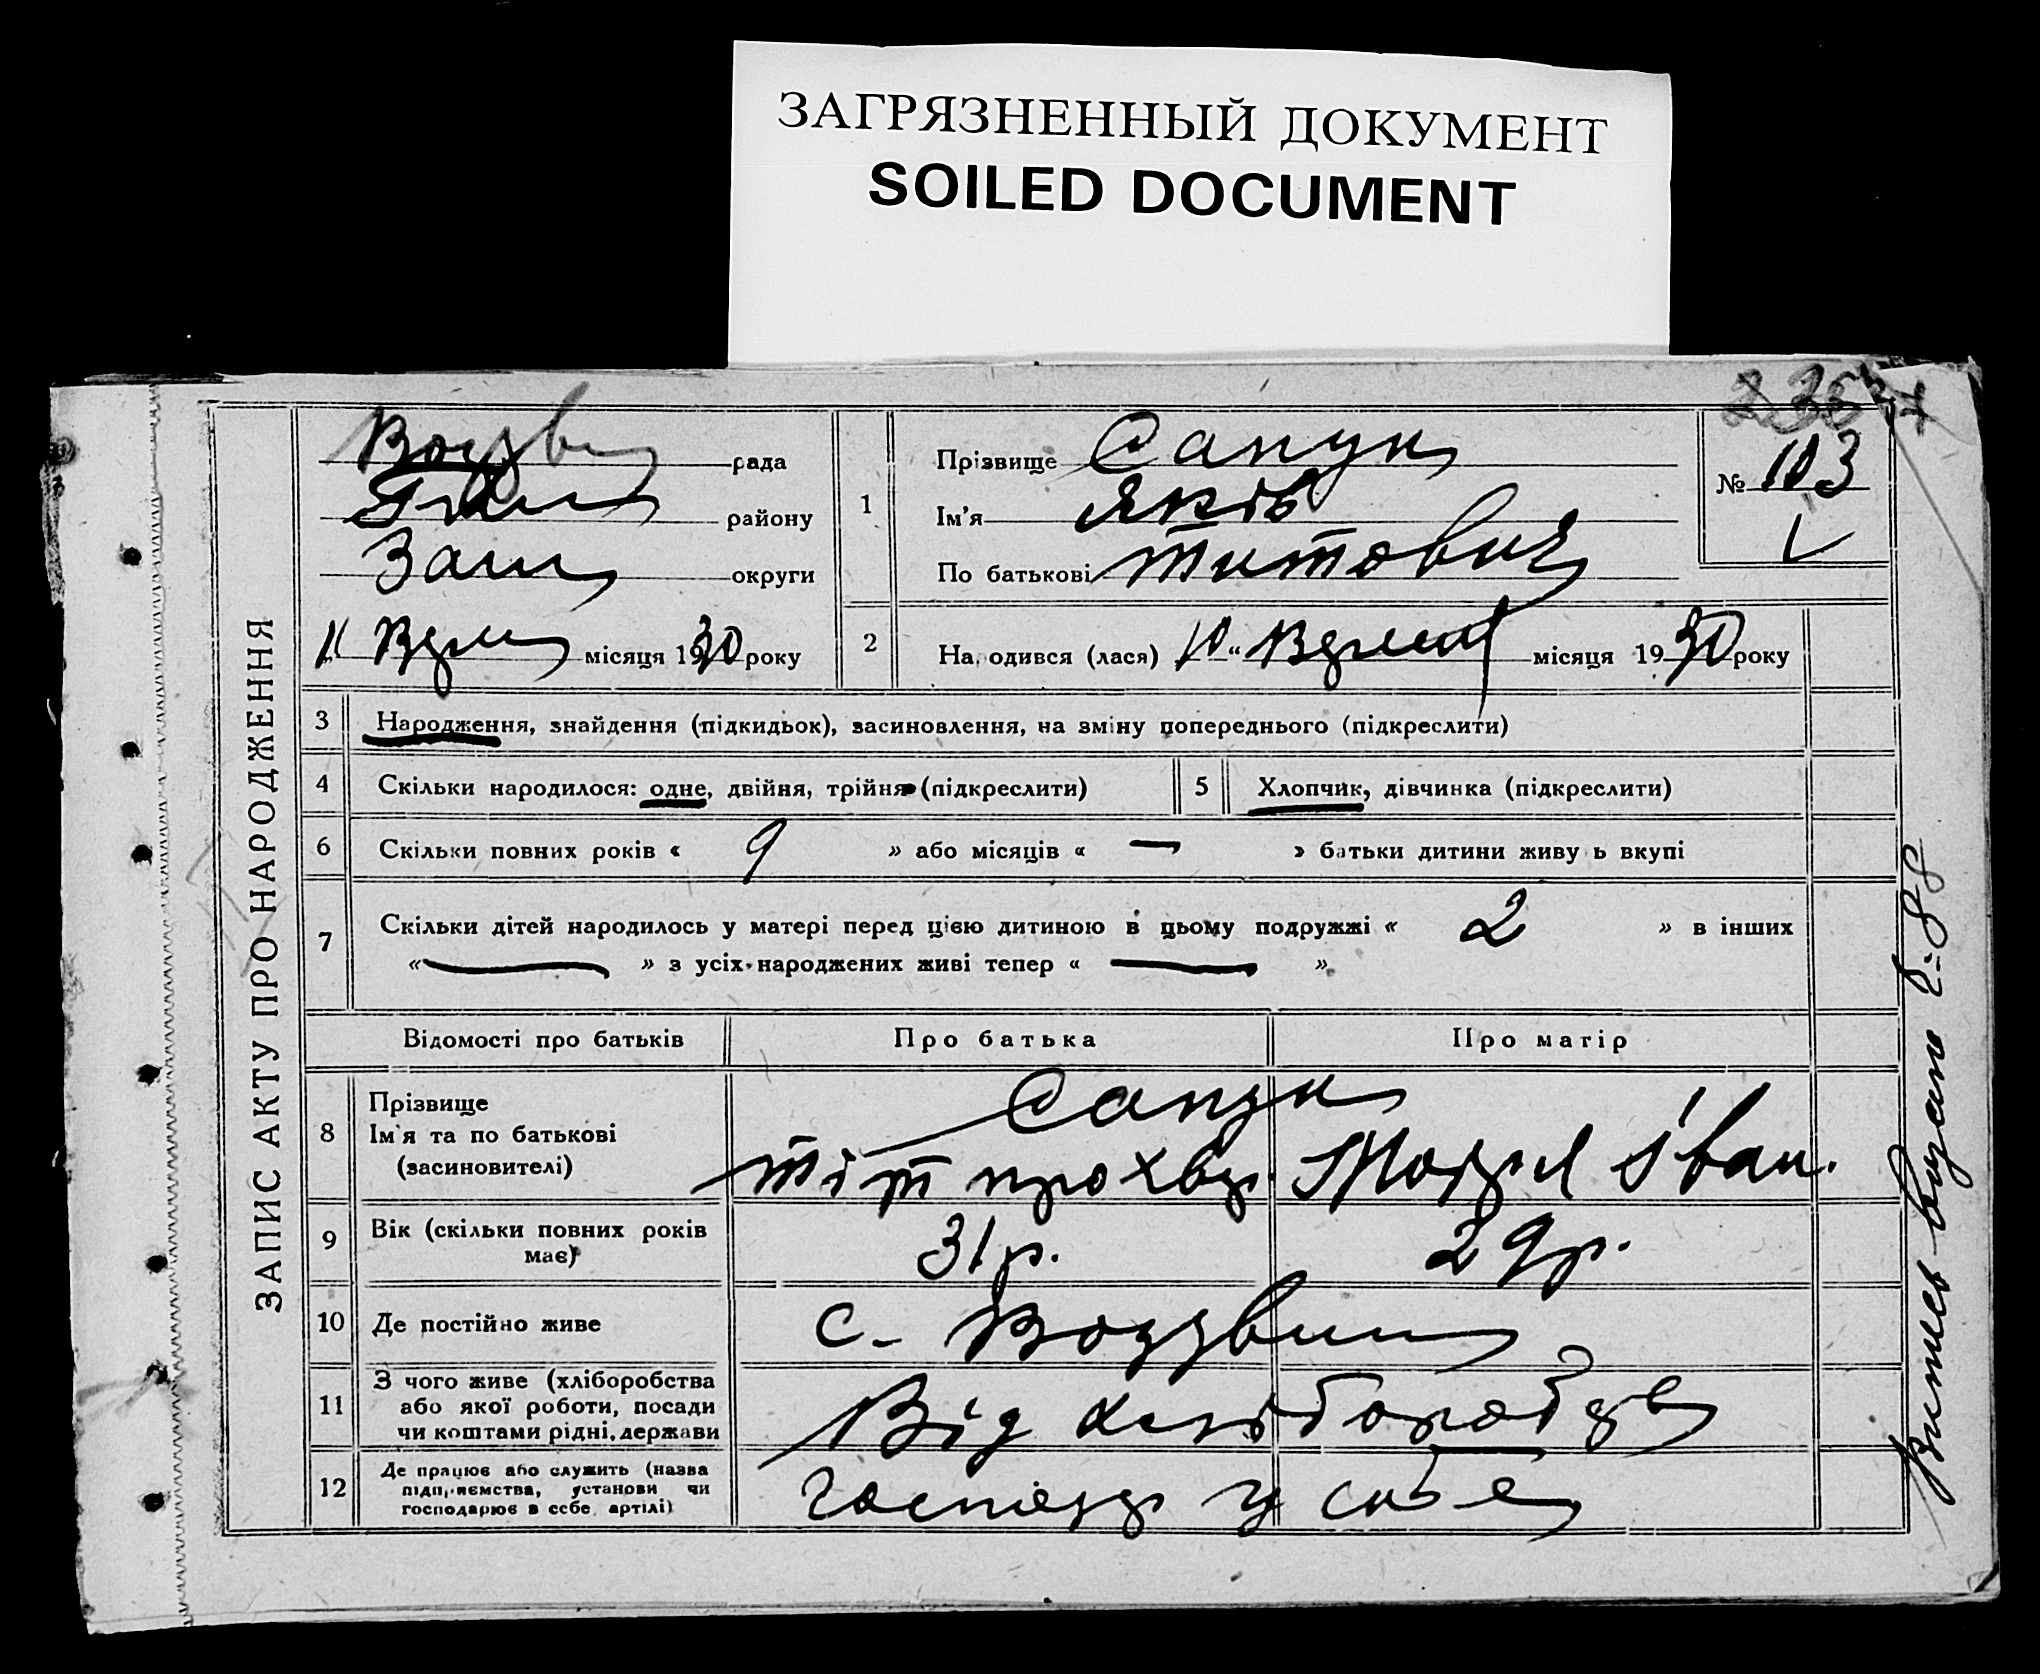 ЗАГРЯЗНЕННЫЙ ДОКУМЕНТ
SOILED DOCUMENT
ЗАПИС АКТУ ПРО НАРОДЖЕННЯ
рада
району
округи
11 місяця 1930 року
1
Прізвище Сапун
Ім'я Яків
По батькові Титович
№ 103
2 Народився (лася) 10 " місяця 1930 року
3 Народження, знайдення (підкидьок), засиновлення, на зміну попереднього (підкреслити)
4 Скільки народилося: одне, двійня, трійня (підкреслити)
5 Хлопчик, дівчинка (підкреслити)
6 Скільки повних років « 9 » або місяців « — » батьки дитини живуть вкупі
7 Скільки дітей народилось у матері перед цією дитиною в цьому подружжі « 2 » в інших
« — » з усіх народжених живі тепер « — »
Відомості про батьків Про батька Про матір
8 Прізвище
Ім'я та по батькові
(засиновителі)
Сапун
Тіт Іван.
9 Вік (скільки повних років має)
31 р. 29 р.
10 Де постійно живе
с.
11 З чого живе (хліборобства
або якої роботи, посади
чи коштами рідні, держави
Від
12 Де працює або служить (назва
підприємства, установи чи
господарює в себе, артілі)
у себе